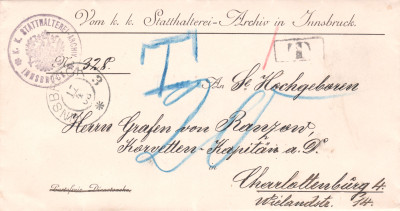 Vom k. k. Statthalterei-Archiv in Innsbruck.
K. K. STATTHALTEREI-ARCHIV
INNSBRUCK
No. 328.
T
T
20
INNSBRUCK 3
An Se Hochgeboren
Herrn Grafen von Ranzow,
Korvetten-Kapitän a. D.
Charlottenburg 4
Wielandstr.
14.
Portofreie Dienstsache.